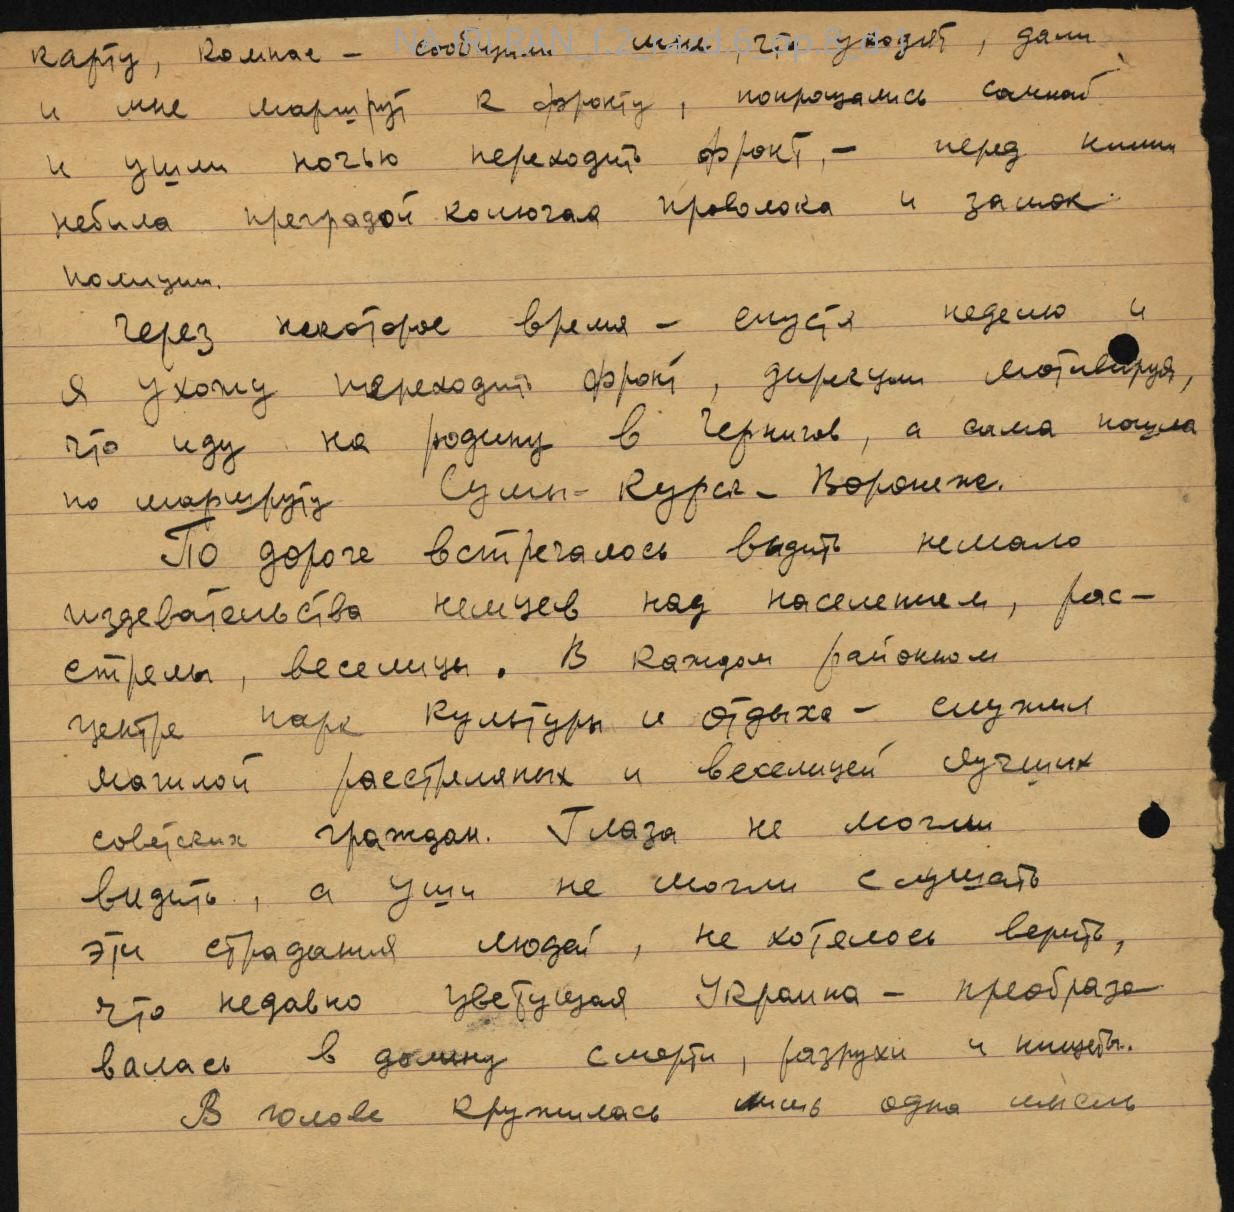 карту, компас – сообщили мне, что уходят, дали
и мне маршрут к фронту, попрощались со мной
и ушли ночью переходить фронт, – перед ними
небила преградой колючая проволока и замок
полиции.
Через некоторое время – спустя неделю и
я ухожу переходить фронт, дирекции мотивируя,
что иду на родину в Чернигов, а сама пошла
по маршруту Сумы – Курск – Воронеж.
По дороге встречалось видить немало
издевательства немцев над населением, рас–
стрелы, веселицы. В каждом районном
центре парк культуры и отдыха – служил
магилой расстреляных и веселицей лучших
советских граждан. Глаза не могли
видить, а уши не могли слушать
эти страдания людей, не хотелось верить,
что недавно цветущая Украина – преобразо
валась в долину смерти, разрухи и нищеты.
В голове кружилась лишь одна мысль